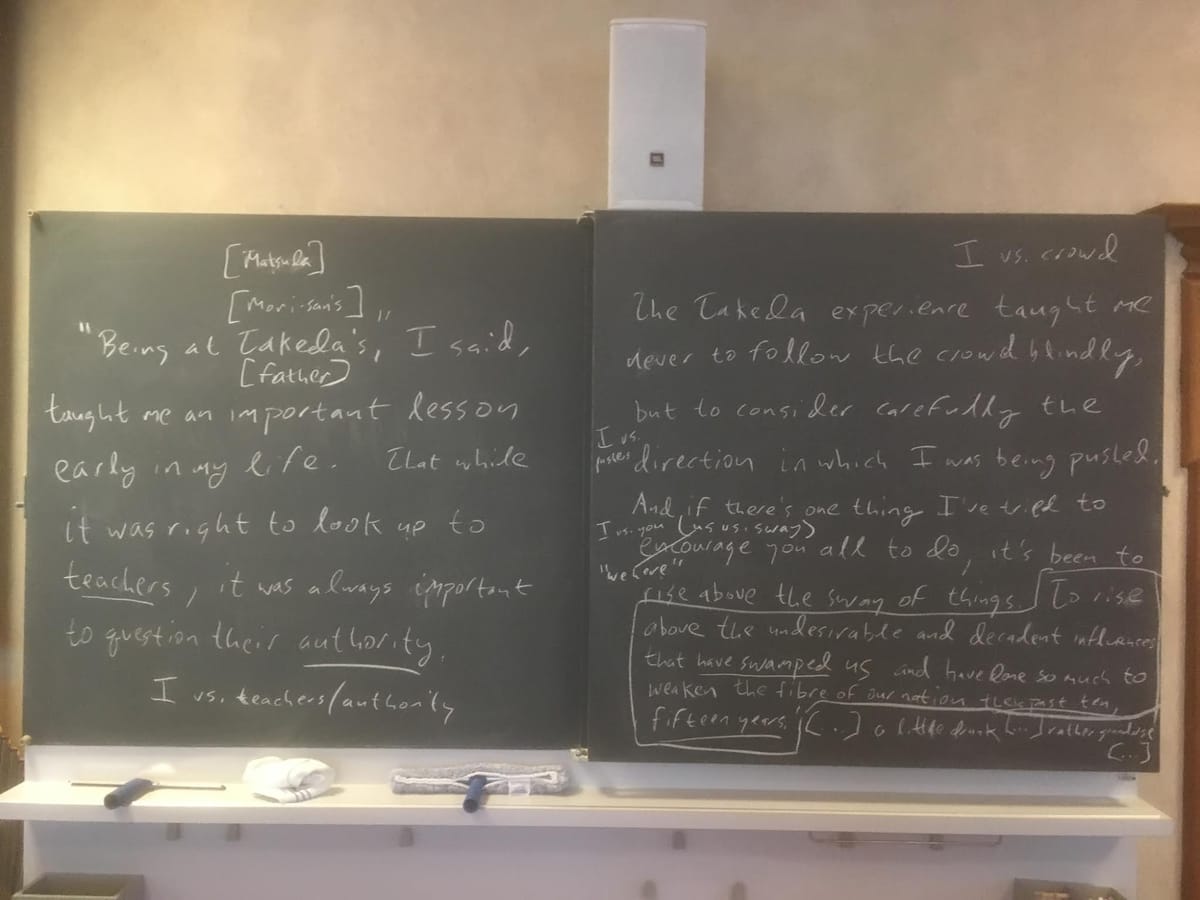 [Matsuda]
[Mori-san's]
"Being at Takeda's," I said,
[father]
taught me an important lesson
early in my life. That while
it was right to look up to
teachers, it was always important
to question their authority.
I vs. teachers/authority
I vs. crowd
The Takeda experience taught me
never to follow the crowd blindly,
but to consider carefully the
I vs.
pushers
direction in which I was being pushed.
And if there's one thing I've tried to
I vs. you (us vs. sway)
encourage you all to do, it's been to
"we here"
rise above the sway of things. To rise
above the undesirable and decadent influences
that have swamped us and have done so much to
weaken the fibre of our nation these past ten,
fifteen years. (...] a little drunk [...] rather grandiose
(...]
JBL